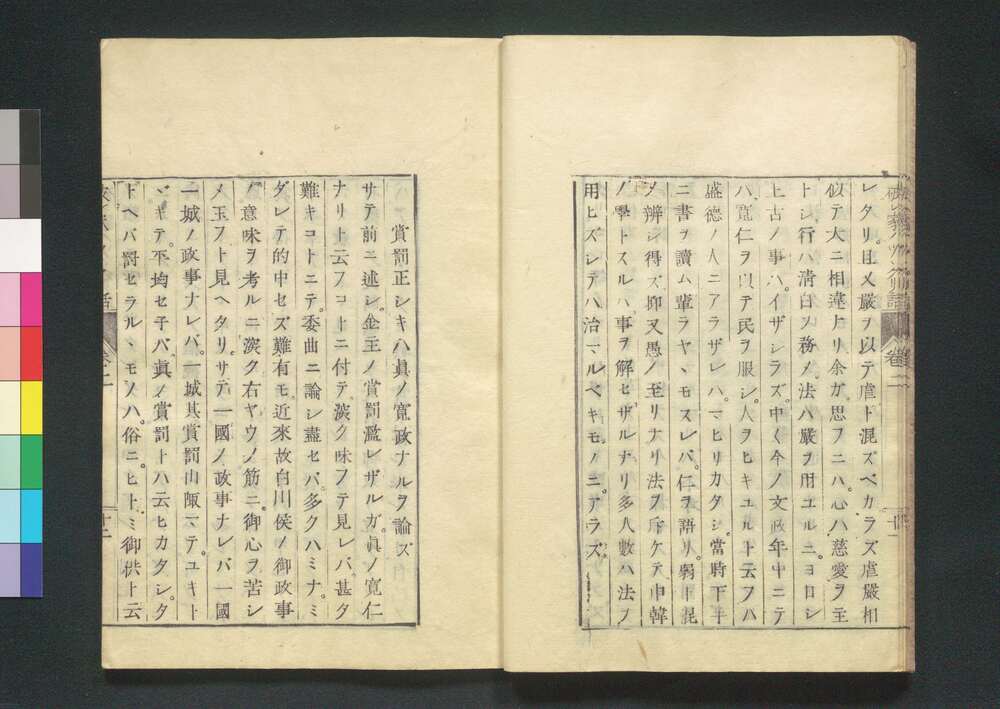 レタリ。且又嚴ヲ以テ虐ト混ズベカラズ虐嚴相
似テ大ニ相違ナリ余ガ思フニハ。心ハ慈愛ヲ主
トシ。行ハ清白ヲ務メ。法ハ嚴ヲ用ユルニ。ヨロシ
上古ノ事ハ。イザシラズ。中々今ノ文政年中ニテ
ハ寛仁ヲ以テ民ヲ服シ。人ヲヒキユルト云フハ
盛德ノ人ニアラザレハ。マヒリカタシ。當時下手
ニ書ヲ讀ム輩ラヤヽモスレバ。仁ヲ語リ。弱ト混
メ辨シ得ズ抑又愚ノ至リナリ法ヲ斥ケテ申韓
ノ學トスルハ。事ヲ解セザルナリ多人數ハ法ヲ
用ヒズシテハ治マルベキモノニアラズ。
賞罰正シキハ眞ノ寛政ナルヲ論ズ
サテ前ニ述シ。企王ノ賞罰濫レザルガ。眞ノ寛仁
ナリト云フコトニ付テ。深ク味フテ見レバ。甚タ
難キコトニテ。委曲ニ論シ盡セバ。多クハミナ。ミ
ダレテ的中セズ難有モ近來故白川侯ノ御政事
ノ意味ヲ考ルニ深ク右ヤウノ筋ニ。御心ヲ苦シ
メ玉フト見ヘタリ。サテ一國ノ政事ナレバ一國
一城ノ政事ナレバ。一城其賞罰山陬マテ。ユキト
ヾキテ。平均セ子バ。眞ノ賞罰トハ云ヒカタシ。タ
トヘバ爵セラルヽモノハ。俗ニ。ヒトミ御供ト云